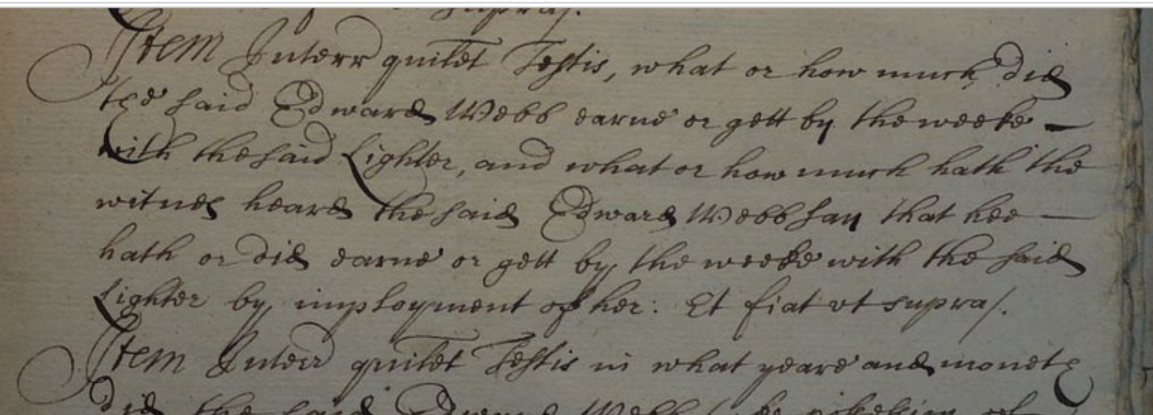 supra/.
Item Interr quilet Testis, what or how much did
the said Edward Webb earne or gett by the weeke
with the said Lighter, and what or how much hath the
witnes heard the said Edward Webb say that hee
hath or did earne or gett by the weeke with the said
Lighter by imployment of her: Et fiat vt supra/.
Item Interr quilet Testis in what yeare and moneth
did the said Edward Webb